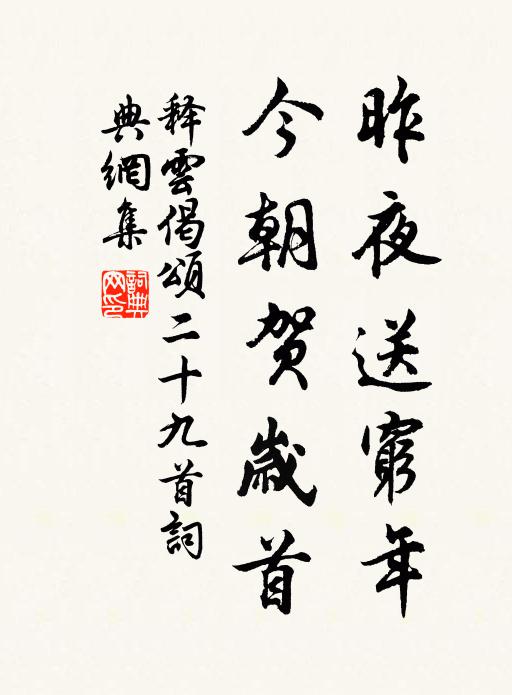 昨夜送窮年
今朝贺歲首
释雲偈頌二十九首詞
典網集
詞典
网印